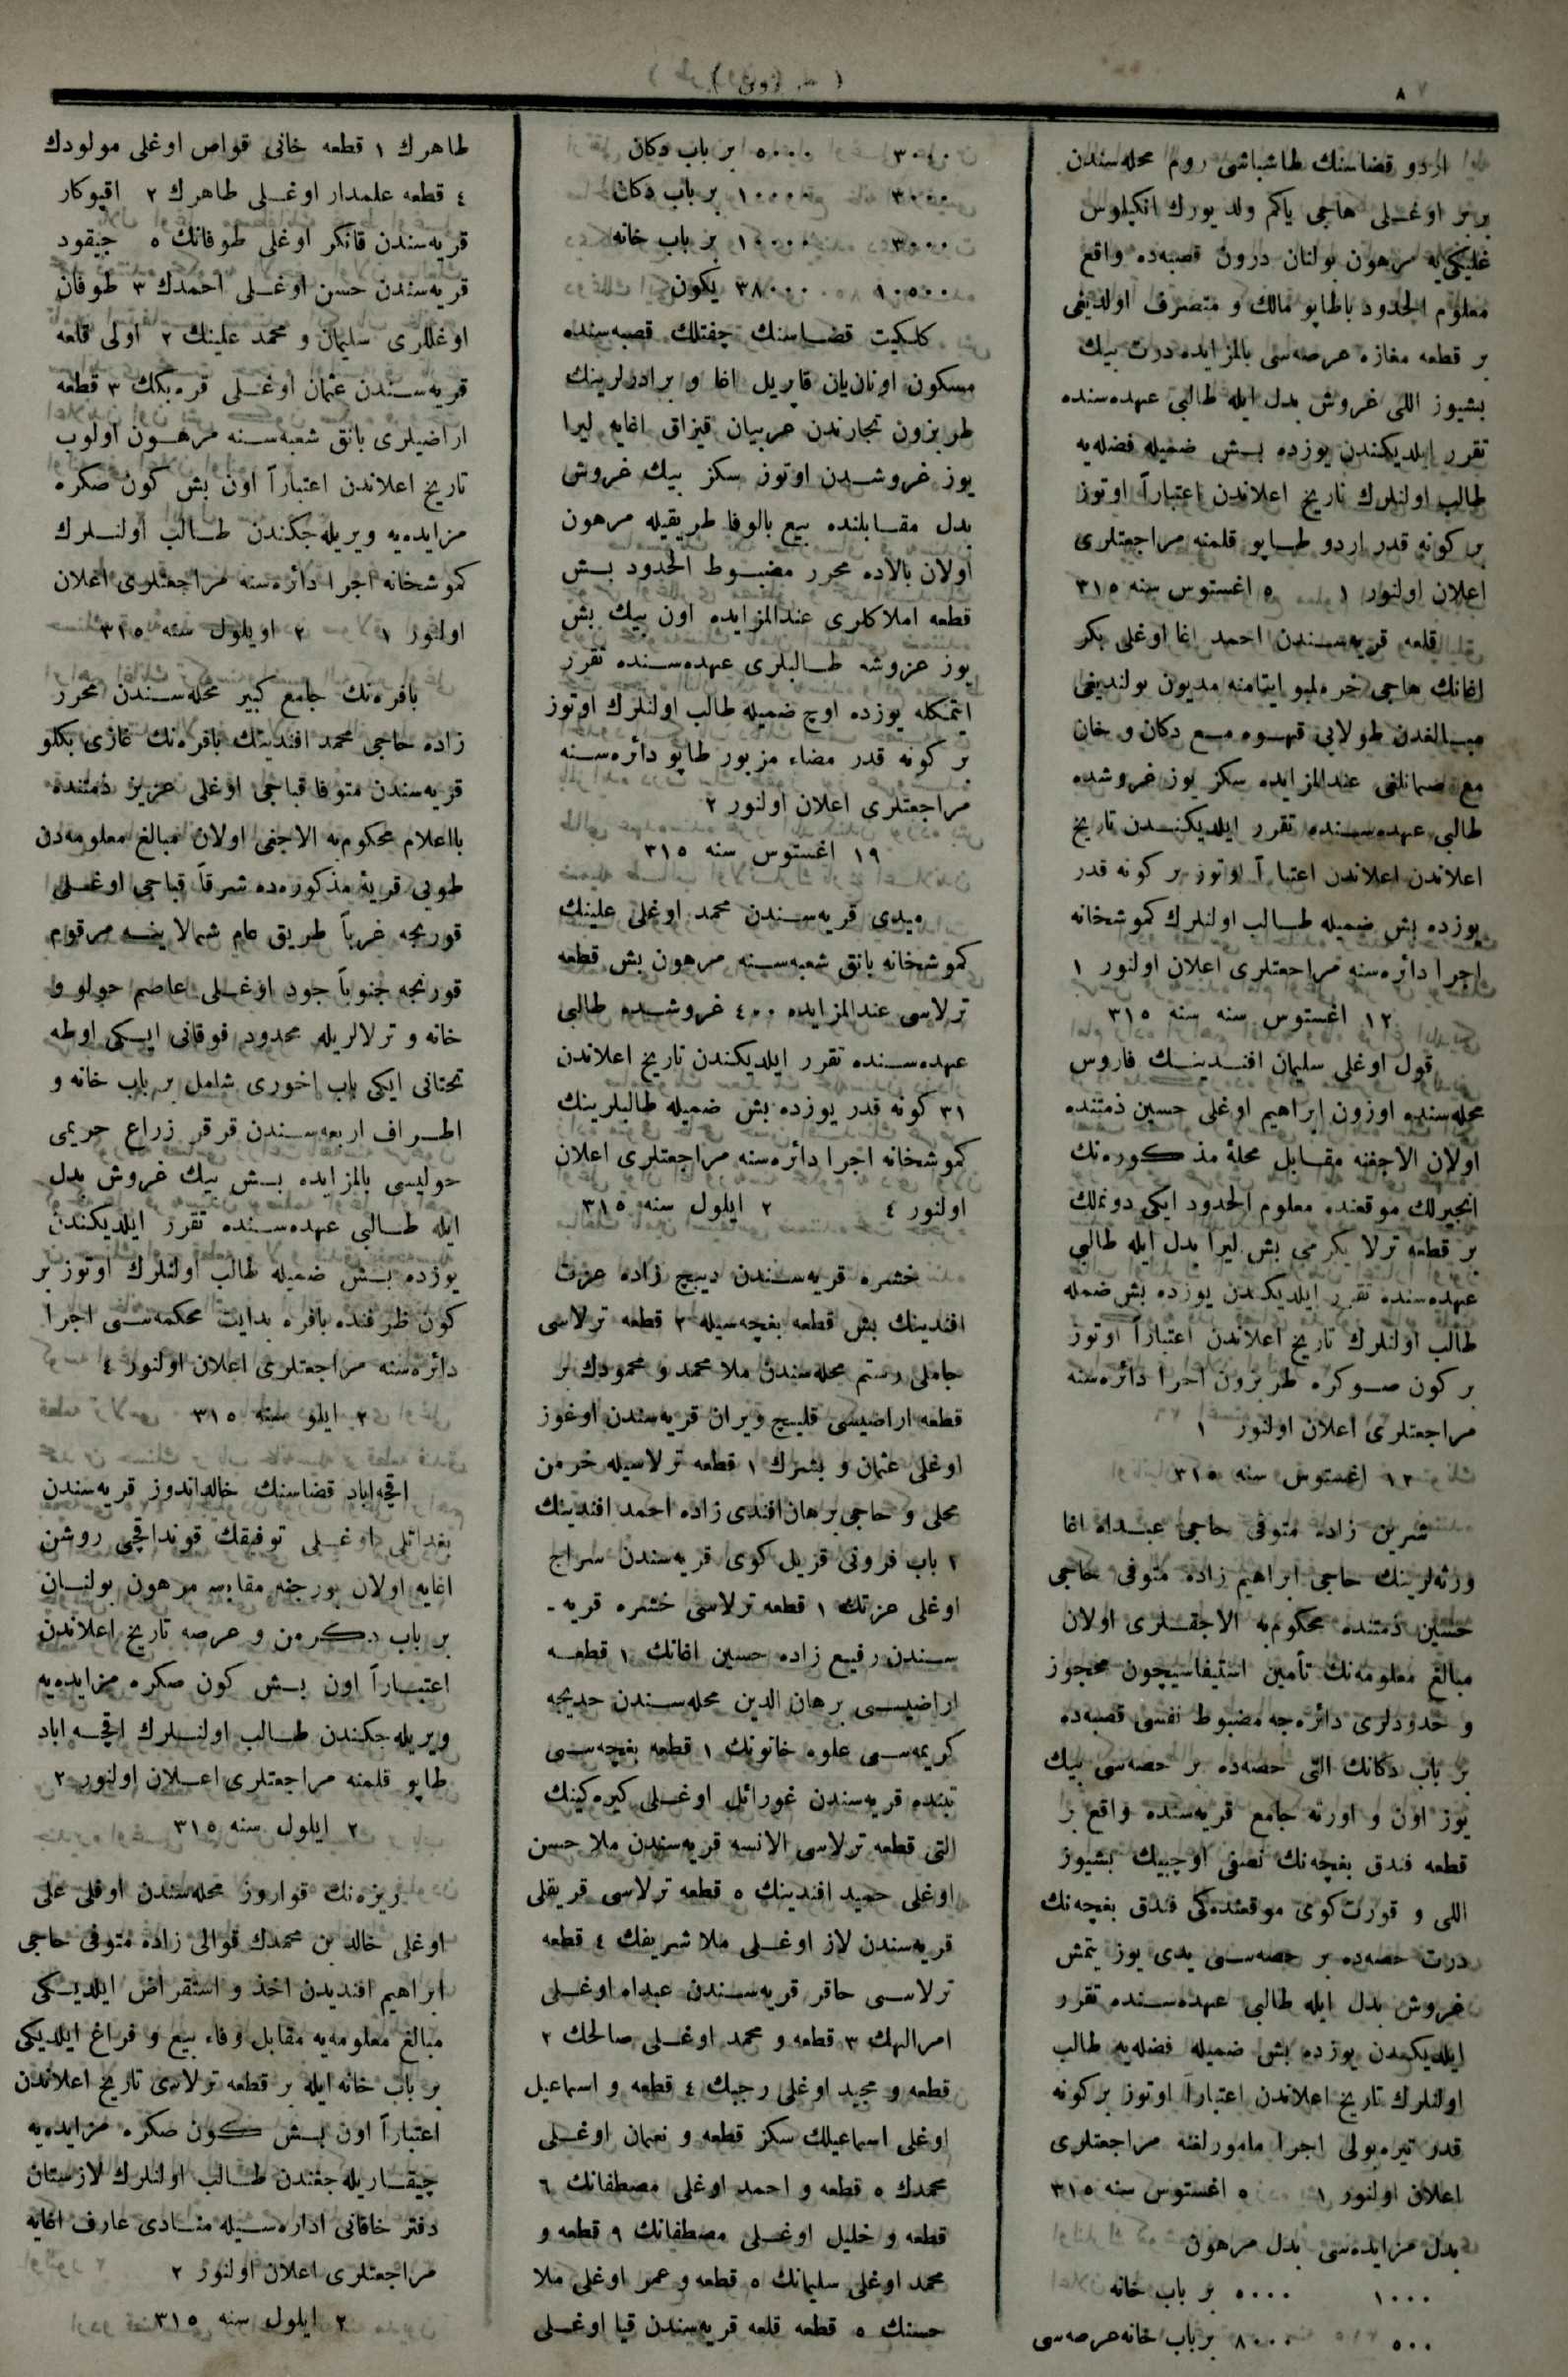 ٨
اردو قضاسنك طاشباشى روم محله‌سندن
بربر اوغلى حاجى ياكم ولد يورك انكيلوس
مرهون بولنان درون قصبه‌ده واقع
معلوم الحدود باطاپو مالك و متصرف اولديغى
بر قطعه مغازه عرصه‌سى بالمزايده درت بيك
بشيوز اللى غروش بدل ايله طالبى عهده‌سنده
تقرر ايلديكندن يوزده بش ضميله فضله‌يه
طالب اولنلرك تاريخ اعلاندن اعتباراً اوتوز
بر كونه قدر اردو طاپو قلمنه مراجعتلرى
اعلان اولنور ١ ٥ اغستوس سنه ٣١٥
قلعه قريه‌سندن احمد اغا اوغلى بكر
اغانك حاجى خرملبو ايتامنه مديون بولنديغى
مبالغدن طولايى قهوه مع دكان و خان
مع صمانلغى عندالمزايده سكز يوز غروشده
طالبى عهده‌سنده تقرر ايلديكندن تاريخ
اعلاندن اعلاندن اعتباراً اوتوز بر كونه قدر
يوزده بش ضميله طالب اولنلرك كموشخانه
اجرا دائره‌سنه مراجعتلرى اعلان اولنور ١
١٢ اغستوس سنه سنه ٣١٥
قول اوغلى سليمان افندينك فاروس
محله‌سنده اوزون ابراهيم اوغلى حسين ذمتنده
اولان الاجغنه مقابل محلهٔ مذكوره‌نك
انجيرلك موقعنده معلوم الحدود ايكى دونملك
بر قطعه ترلا يكرمى بش ليرا بدل ايله طالبى
عهده‌سنده تقرر ايلديكندن يوزده بش ضمله
طالب اولنلرك تاريخ اعلاندن اعتباراً اوتوز
بر كون صوكره طربزون اجرا دائره‌سنه
مراجعتلرى اعلان اولنور ١
١٢ اغستوس سنه ٣١٥
شرين زاده متوفى حاجى عبداه اغا
ورثه‌لرينك حاجى ابراهيم زاده متوفى حاجى
حسين ذمتنده محكوم‌به الاجقلرى اولان
مبالغ معلومه‌نك تأمين استيفاسيچون محجوز
و حدودلرى دائره‌جه مضبوط نفسى قصبه‌ده
بر باب دكانك التى حصه‌ده بر حصه‌سى بيك
يوز اون و اورته جامع قريه‌سنده واقع بر
قطعه فندق بغچه‌نك نصفى اوچبيك بشيوز
اللى و قورت‌كوى موقعنده‌كى فندق بغچه‌نك
درت حصه‌ده بر حصه‌سى يدى يوز يتمش
غروش بدل ايله طالبى عهده‌سنده تقرر
ايلديكندن يوزده بش ضميله فضله‌يه طالب
اولنلرك تاريخ اعلاندن اعتباراً اوتوز بر كونه
قدر تيره‌بولى اجرا مامورلغنه مراجعتلرى
اعلان اولنور ١ ٥ اغستوس سنه ٣١٥
بدل مزايده‌سى بدل مرهون
١٠٠٠ ٥٠٠٠ بر باب خانه
٥٠٠ ٨٠٠٠ بر باب خانه عرصه‌سى
٣٠٠٠ ٥٠٠٠ بر باب دكان
٣٠٠٠ ١٠٠٠٠ بر باب دكان
٣٠٠٠ ١٠٠٠٠ بر باب خانه
١٠٥٠٠ ٣٨٠٠٠ يكون
كلكيت قضاسنك چفتلك قصبه‌سنده
مسكون اونان‌يان قاپريل اغا و برادرلرينك
طربزون تجارندن عربيان قيزاق اغايه ليرا
يوز غروشدن اوتوز سكز بيك غروش
بدل مقابلنده بيع بالوفا طريقيله مرهون
اولان بالاده محرر مضبوط الحدود بش
قطعه املاكلرى عندالمزايده اون بيك بش
يوز عزوشه طالبلرى عهده‌سنده تقرر
ايتمكله يوزده اوچ ضميله طالب اولنلرك اوتوز
بر كونه قدر مضاء مزبور طاپو دائره‌سنه
مراجعتلرى اعلان اولنور ٢
١٩ اغستوس سنه ٣١٥
ميدى قريه‌سندن محمد اوغلى علينك
كموشخانه بانق شعبه‌سنه مرهون بش قطعه
ترلاسى عندالمزايده ٤٠٠ غروشده طالبى
عهده‌سنده تقرر ايلديكندن تاريخ اعلاندن
٣١ كونه قدر يوزده بش ضميله طالبلرينك
كموشخانه اجرا دائره‌سنه مراجعتلرى اعلان
اولنور ٤ ٢ ايلول سنه ٣١٥
خشره قريه‌سندن ديبچ زاده عزت
افندينك بش قطعه بغچه‌سيله ٢ قطعه ترلاسى
جاملى رستم محله‌سندن ملا محمد و محمودك بر
قطعه اراضيسى قليچ ويران قريه‌سندن اوغوز
اوغلى عثمان و بشرك ١ قطعه ترلاسيله خرمن
محلى و حاجى برهان‌افندى زاده احمد افندينك
٢ باب فرونى قزيل كوى قريه‌سندن سراج
اوغلى عزتك ١ قطعه ترلاسى خشره قريه‌-
سندن رفيع زاده حسين اغانك ١ قطعه
اراضيسى برهان الدين محله‌سندن حديجه
كريمه‌سى علوه خاتونك ١ قطعه بغچه‌سى
تبنده قريه‌سندن غورائل اوغلى كيره‌كينك
التى قطعه ترلاسى الانسه قريه‌سندن ملا حسن
اوغلى حميد افندينك ٥ قطعه ترلاسى قريقلى
قريه‌سندن لاز اوغلى ملا شريفك ٤ قطعه
ترلاسى حاقر قريه‌سندن عبداه اوغلى
امرالهك ٣ قطعه و محمد اوغلى صالحك ٢
قطعه و مجيد اوغلى رجبك ٤ قطعه و اسماعيل
اوغلى اسماعيلك سكز قطعه و نعمان اوغلى
محمدك ٥ قطعه و احمد اوغلى مصطفانك ٦
قطعه و خليل اوغلى مصطفانك ٩ قطعه و
محمد اوغلى سليمانك ٥ قطعه و عمر اوغلى ملا
حسنك ٥ قطعه قلعه قريه‌سندن قيا اوغلى
طاهرك ١ قطعه خانى قواص اوغلى مولودك
٤ قطعه علمدار اوغلى طاهرك ٢ اقپوكار
قريه‌سندن قانكر اوغلى طوفانك ٥ جيقود
قريه‌سندن حسن اوغلى احمدك ٣ طوفان
اوغللرى سليمان و محمد علينك ٢ اولى قلعه
قريه‌سندن عثمان اوغلى قره‌بكك ٣ قطعه
اراضيلرى بانق شعبه‌سنه مرهون اولوب
تاريخ اعلاندن اعتباراً اون بش كون صكره
مزايده‌يه ويريله‌جكندن طالب اولنلرك
كموشخانه اجرا دائره‌سنه مراجعتلرى اعلان
اولنور ١ ٢ اويلول سنه ٣١٥
بافره‌نك جامع كبير محله‌سندن محرر
زاده حاجى محمد افندينك بافره‌نك غازى بكلو
قريه‌سندن متوفا قباجى اوغلى عزيز ذمتنده
بااعلام محكوم‌به الاجغى اولان مبالغ معلومه‌دن
طولى قريهٔ مذكوره‌ده شرقاً قباجى اوغلى
قورنجه غرباً طريق عام شمالا ينه مرقوم
قورنجه جنوباً جود اوغلى عاصم حولو و
خانه و ترلالريله محدود فوقانى ايكى اوطه
تحتانى ايكى باب اخورى شامل بر باب خانه و
اطراف اربعه‌سندن قرقر زراع حريمى
حوليسى بالمزايده بش بيك غروش بدل
ايله طالبى عهده‌سنده تقرر ايلديكندن
يوزده بش ضميله طالب اولنلرك اوتوز بر
كون ظرفنده بافره بدايت محكمه‌سى اجرا
دائره‌سنه مراجعتلرى اعلان اولنور ٤
٢ ايلو سنه ٣١٥
اقچه‌اباد قضاسنك خالداندوز قريه‌سندن
بغدائلى اوغلى توفيقك قونداقچى روشن
اغايه اولان بورجنه مقابيه مرهون بولنان
بر باب دكرمن و عرصه تاريخ اعلاندن
اعتباراً اون بش كون صكره مزايده‌يه
ويريله‌جكندن طالب اولنلرك اقچه اباد
طاپو قلمنه مراجعتلرى اعلان اولنور ٢
٢ ايلول سنه ٣١٥
ريزه‌نك قواروز محله‌سندن اوفلى على
اوغلى خالد بن محمدك قوالى زاده متوفى حاجى
ابراهيم افنديدن اخذ و استقراض ايلديكى
مبالغ معلومه‌يه مقابل وفاء بيع و فراغ ايلديكى
بر باب خانه ايله بر قطعه ترلاسى تاريخ اعلاندن
اعتباراً اون بش كون صكره مزايده‌يه
چيقاريله‌جغندن طالب اولنلرك لازستان
دفتر خاقانى اداره‌سيله منادى عارف اغايه
مراجعتلرى اعلان اولنور ٢
٢ ايلول سنه ٣١٥